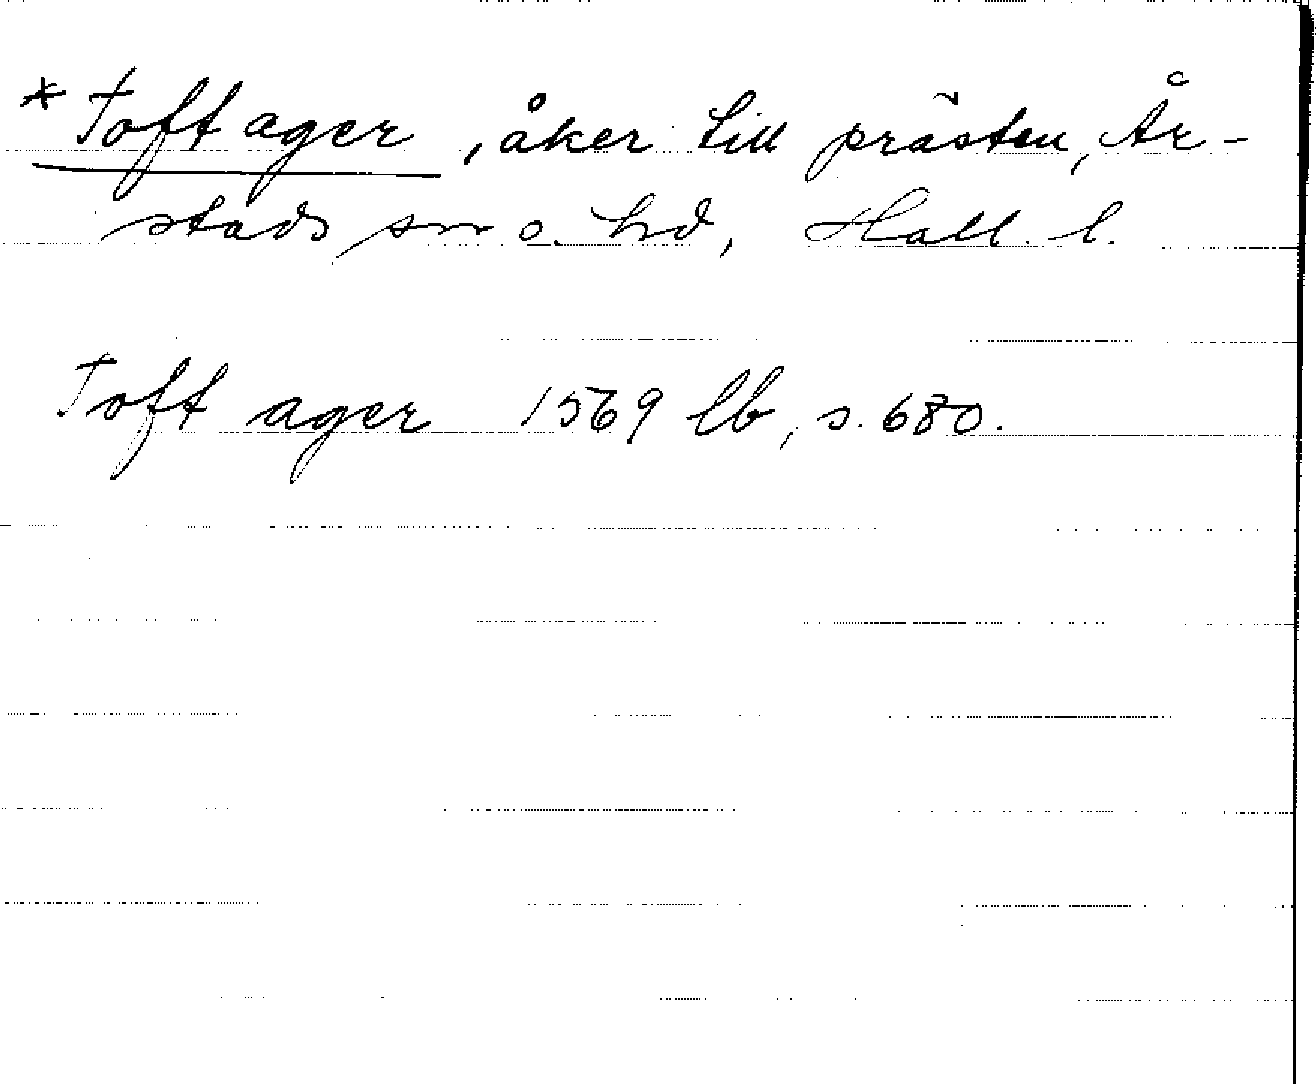 * Toft ager, åker till prästen, År-
stads sn o. hd, Hall. l.
Toft ager 1569 lb, s. 680.